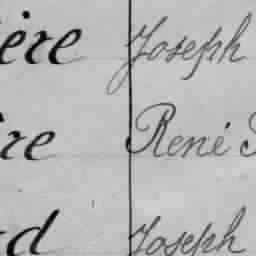 ière Joseph
re René
d Joseph